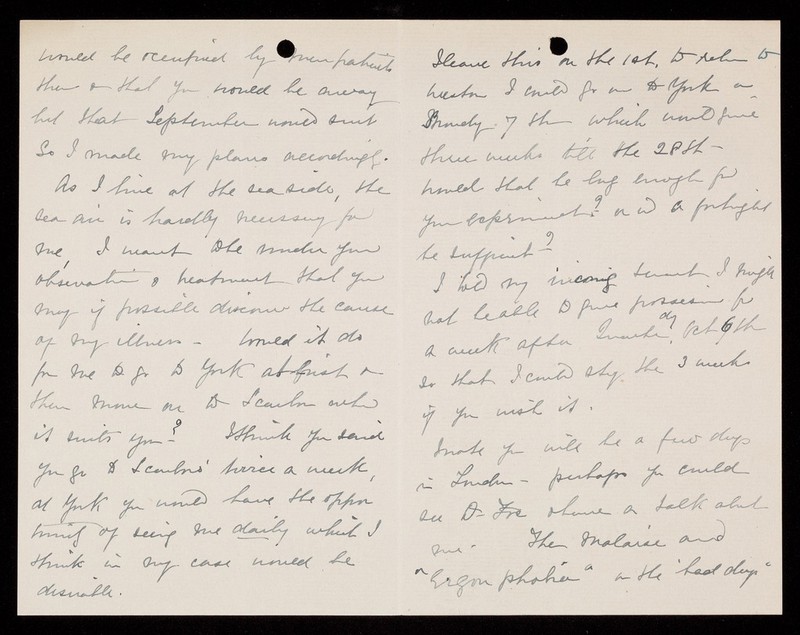 would be occupied by new patients
then & that you would be away
but that September would suit
So I made my plans accordingly.
As I live at the sea side, the
sea air is hardly necessary for
me, I want to be under your
observation & treatment that you
may if possible discover the cause
of my illness - Would it do
for me to go to York at first &
then move on to Scarboro when
it suits you? I think you said
you go to Scarboro' twice a week,
at York you would have the oppor
tunity of seeing me daily which I
think in my case would be
desirable.
I leave this on the 1st, to return to
I could go on to York on
7th which would give
three weeks till the 28th -
Would that be long enough for
your experiment? or would a fortnight
be sufficient?
I told my incoming tenant I might
not be able to give possession for
a week after Quarter day, Oct 6th
so that I could stay the 3 weeks
if you wish it.
I note you will be a few days
in London - perhaps you could
see Dr Fox & have a talk about
me. The Malaise and
"Ergophobia" on the "bad days"